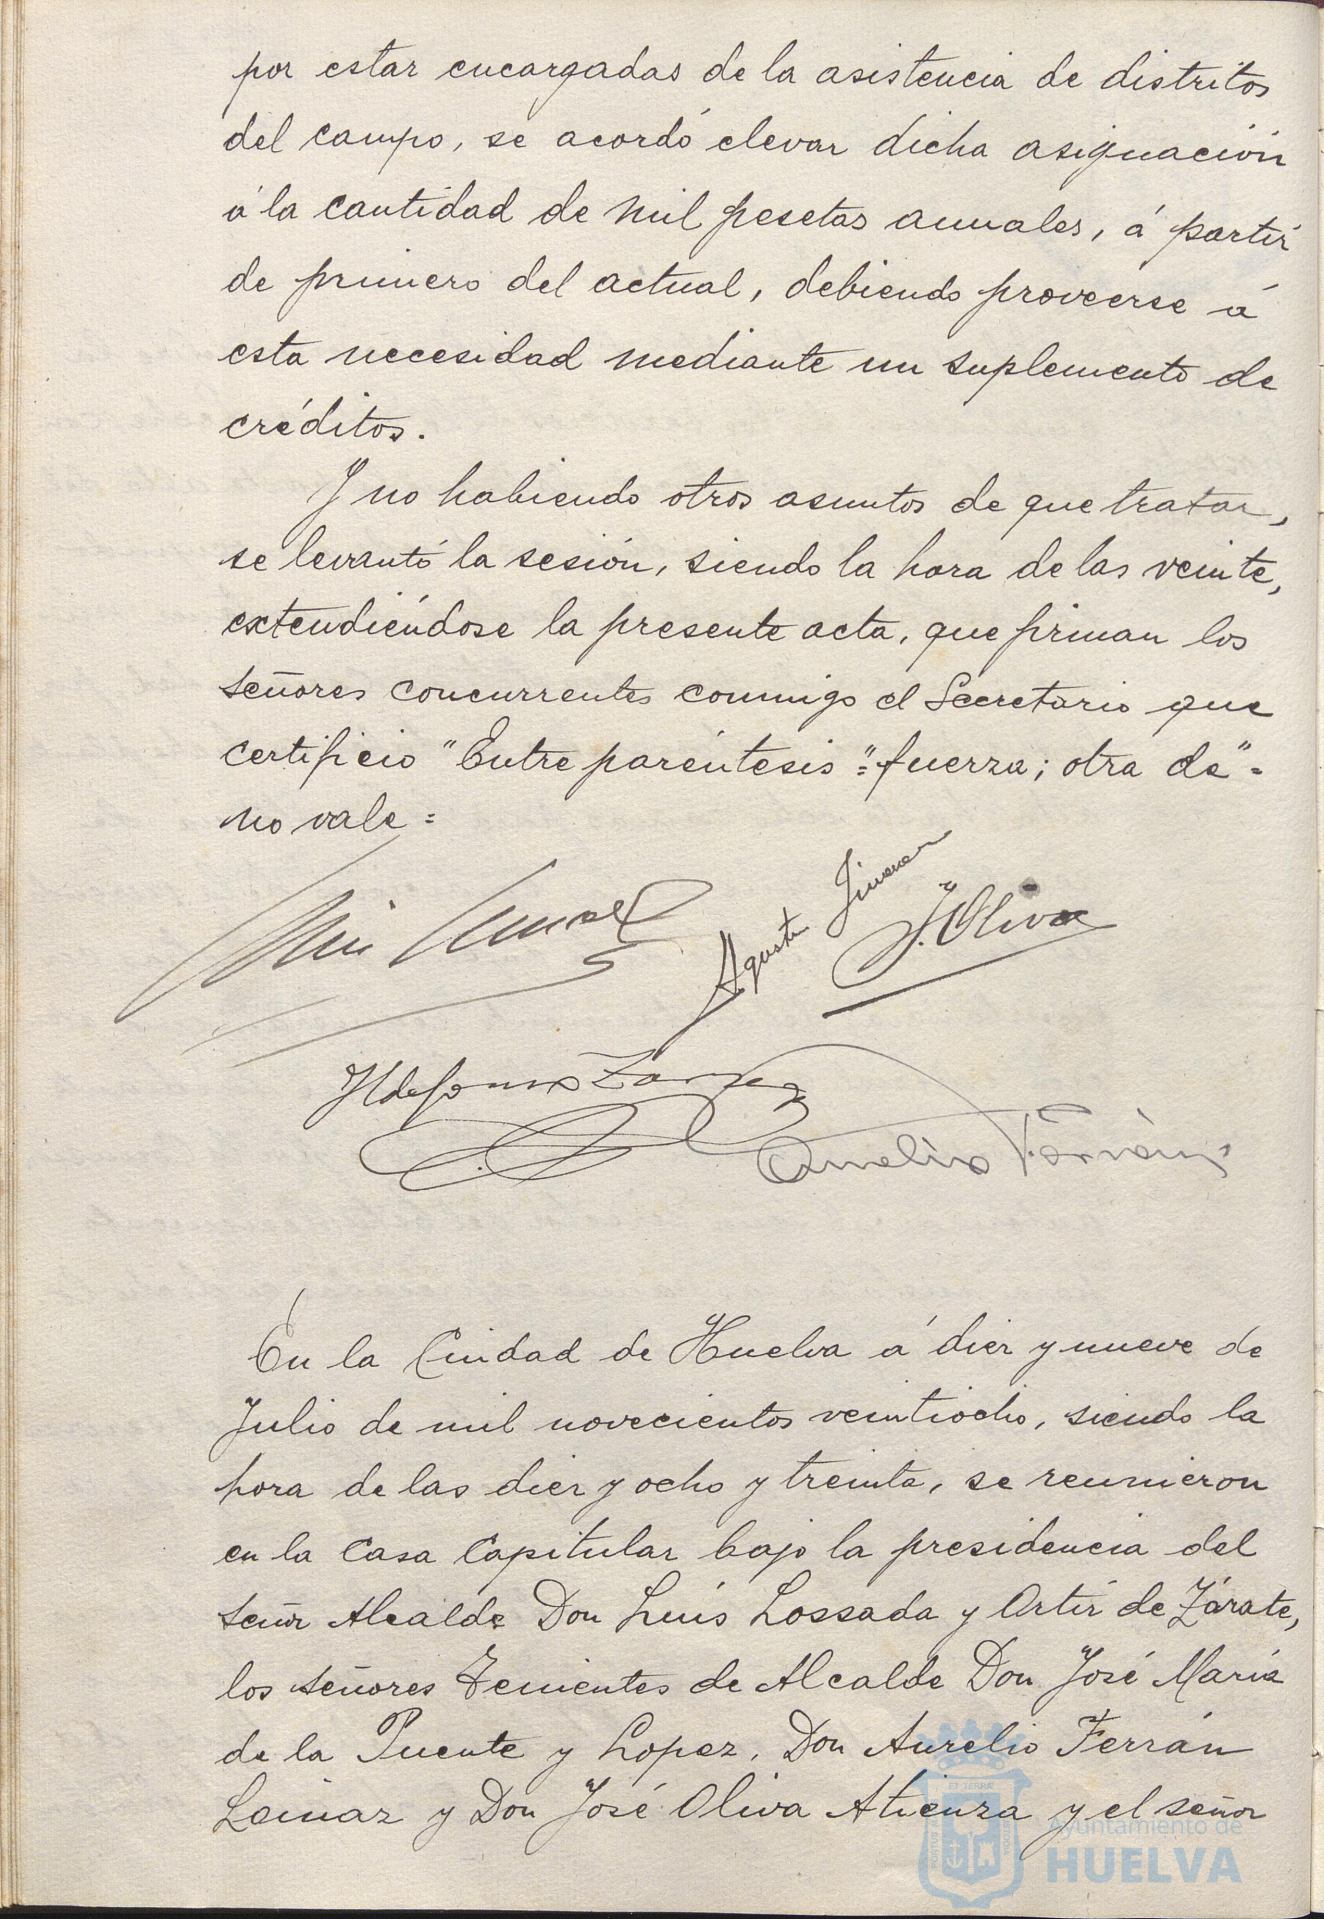 por estar encargadas de la asistencia de distritos
del campo, se acordó elevar dicha asignación
á la cantidad de mil pesetas anuales, á partir
de primero del actual, debiendo proveerse á
esta necesidad mediante un suplemento de
créditos.
Y no habiendo otros asuntos de que tratar,
se levantó la sesión, siendo la hora de las veinte,
extendiéndose la presente acta, que firman los
señores concurrentes conmigo el Secretario que
certificio "Entre paréntesis = "fuerza; otra de" =
no vale =
Agustin Jimenez
J. Oliva
Ildefonso
Aurelio Ferrán
En la Ciudad de Huelva á diez y nueve de
Julio de mil novecientos veintiocho, siendo la
hora de las diez y ocho y treinta, se reunieron
en la Casa Capitular bajo la presidencia del
señor Alcalde Don Luís Lossada y Ortíz de Zárate,
los señores Tenientes de Alcalde Don José María
de la Puente y Lopez, Don Aurelio Ferrán
Loinaz y Don José Oliva Atienza y el señor
Ayuntamiento de
HUELVA